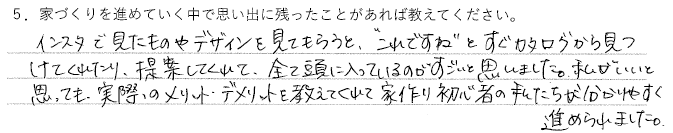 5. 家づくりを進めていく中で思い出に残ったことがあれば教えてください。
インスタで見たものやデザインを見てもらうと、"これですね"とすぐカタログから見つ
けてくれたり、提案してくれて、全て頭に入っているのがすごいと思いました。私がいいと
思っても、実際のメリット・デメリットを教えてくれて家作り初心者の私たちが分かりやすく
進められました。